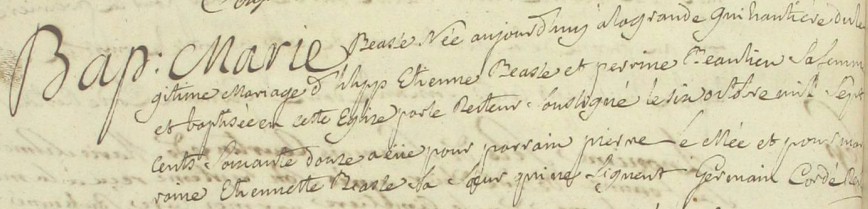 Bap: Marie Beasse Née aujourd'huy à la grande Guihantière du lé
gitime Mariage d' Etienne Beasse et perrine Beaulieu Sa femme
et baptisée en cette Eglise par le Recteur Soussigné le six octobre mil Sept
cents Soixante douze a eüe pour parrain pierre le Mée et pour mar
raine Etiennette Beasse Sa Sœur qui ne Signent Germain Cordé Rec